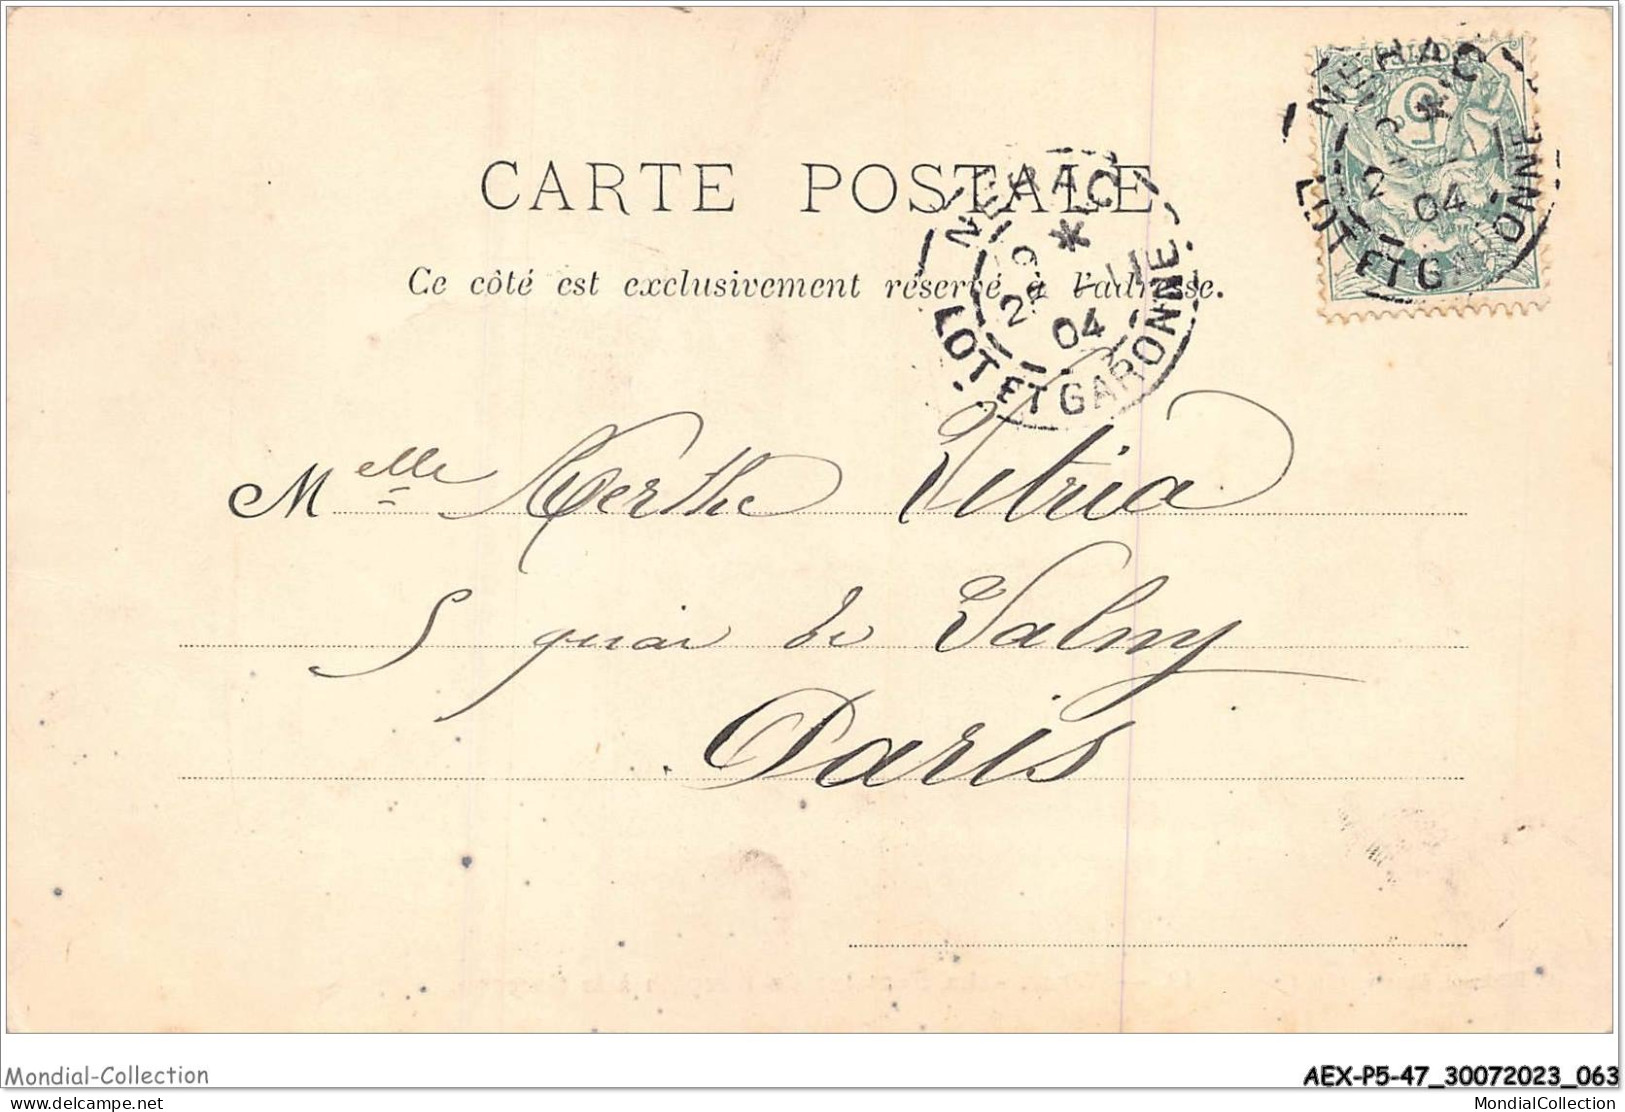 CARTE POSTALE
Ce côté est exclusivement réservé à l'adresse.
NERAC
LOT ET GARONNE
04
NERAC
LOT ET GARONNE
04
5
Melle Berthe Vitria
5 quai de Valmy
Paris
Mondial-Collection
AEX-P5-47_30072023_063
delcampe.net
MondialCollection